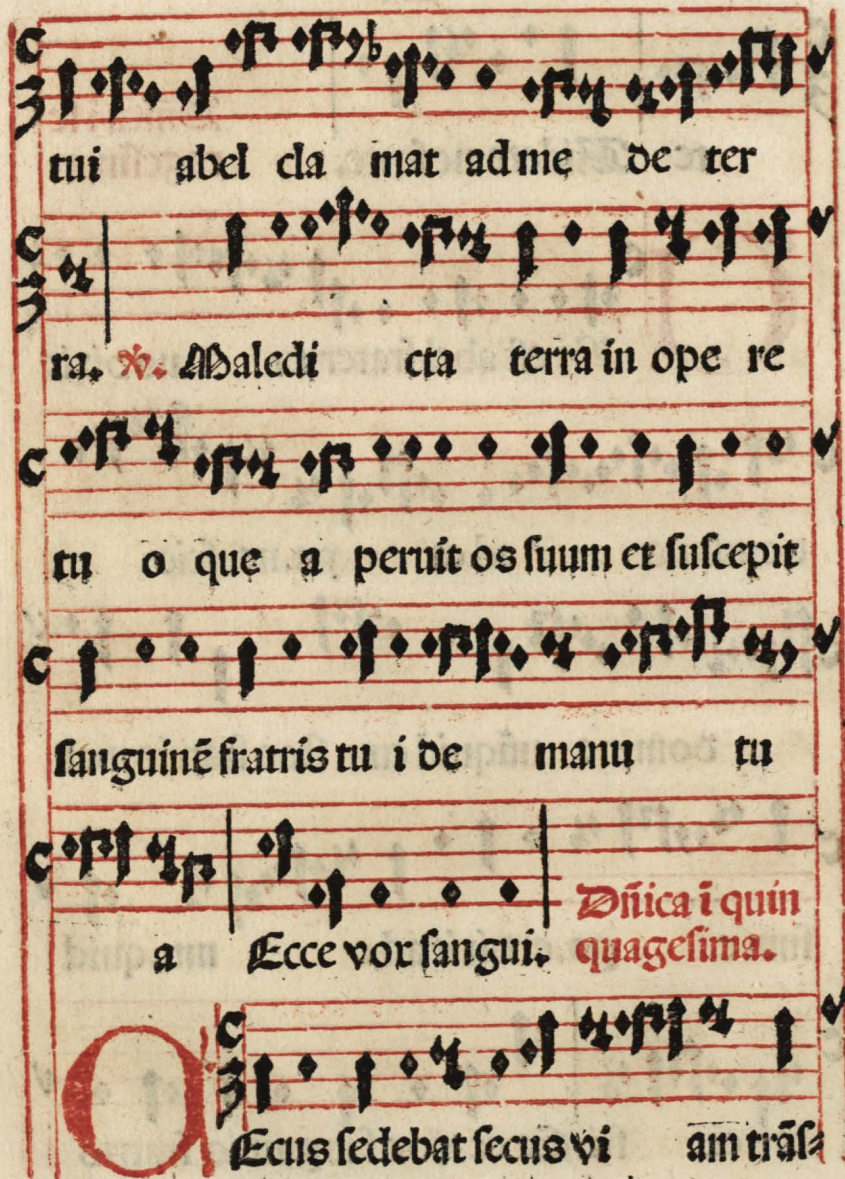 tui abel cla mat ad me de ter
ra. ℣. Maledi cta terra in ope re
tu o que a peruit os suum et suscepit
sanguinē fratris tu i de manu tu
a Ecce vox sangui. Dñica ī quin
quagesima.
CEcus sedebat secus vi am trās⸗